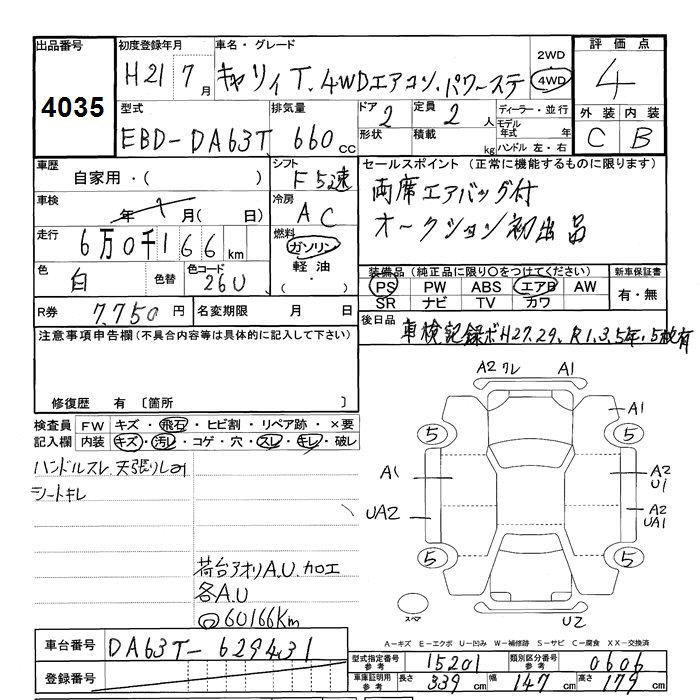 出品番号 初度登録年月 車名・グレード 2WD 4WD 評価点
4035 H21 7月 キャリィT. 4WDエアコン.パワーステ 4
型式 排気量 ドア 2 定員 2人 ディーラー・並行 外装 内装
EBD-DA63T 660cc 形状 積載 kg モデル年式 年 C B
ハンドル 左・右
車歴 自家用・( ) シフト F5速 セールスポイント (正常に機能するものに限ります)
車検 年 月( 日) 冷房 AC 両席エアバッグ付
走行 6万0千166km 燃料 ガソリン オークション初出品
色 白 色替 色コード 26U 軽油 ・( )
装備品 (純正品に限り〇をつけてください) 新車保証書
PS PW ABS エアB AW 有・無
SR ナビ TV カワ
R券 7,750円 名変期限 月 日
後日品 車検記録ボH27.29、R1.3.5年.5枚有
注意事項申告欄 (不具合内容等は具体的に記入して下さい)
修復歴 有 〔箇所
検査員記入欄 FW キズ・飛石・ヒビ割・リペア跡・×要
内装 キズ・汚レ・コゲ・穴・スレ・キレ・破レ
ハンドルスレ 天張りしみ
シートキレ
荷台アオリA.U.カロエ
各A.U
60166Km
A2 ワレ A1
A1
5 5
A1 A2 U1
UA2 A2 UA1
5 5
スペア U2
A-キズ E-エクボ U-凹み W-補修跡 S-サビ C-腐食 XX-交換済
車台番号 DA63T-629431
登録番号
型式指定番号 参考 15201 類別区分番号 参考 0606
車庫証明用 参考 長さ 339cm 幅 147cm 高さ 179cm